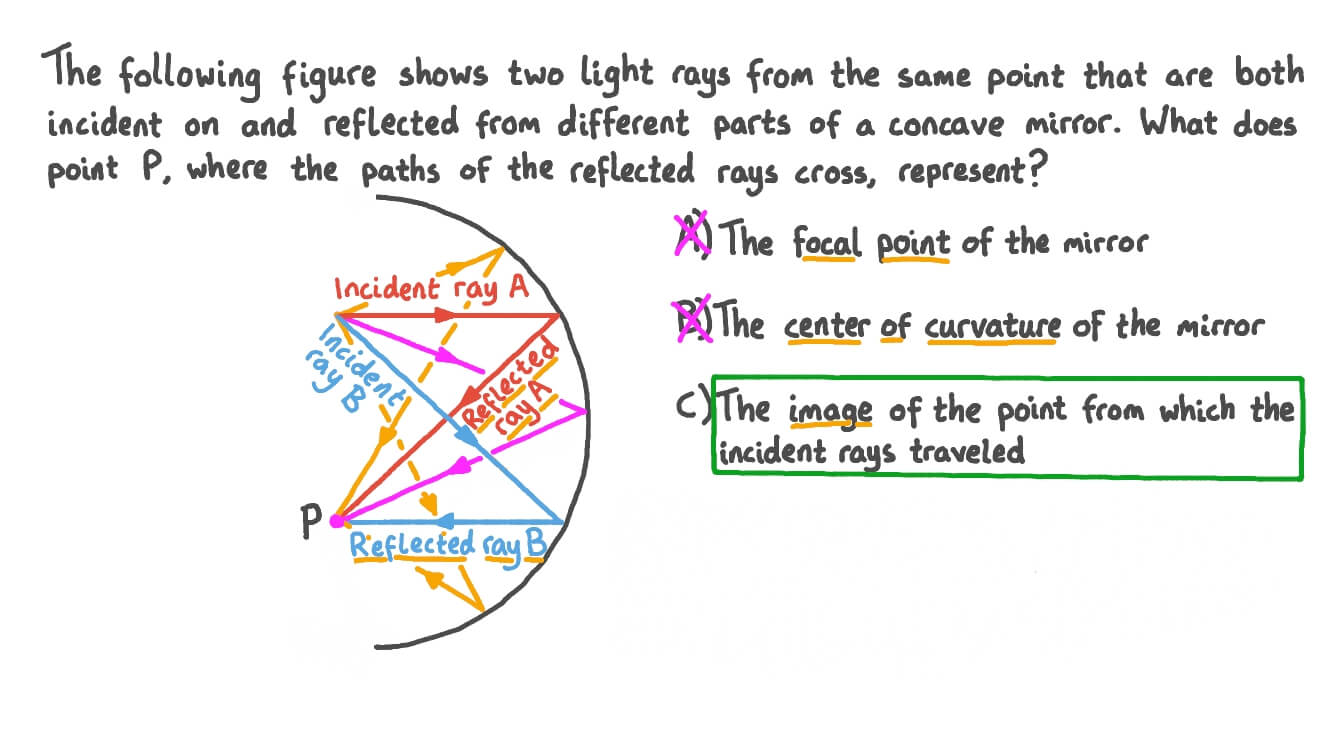 The following figure shows two light rays from the same point that are both
incident on and reflected from different parts of a concave mirror. What does
point P, where the paths of the reflected rays cross, represent?
A) The focal point of the mirror
B) The center of curvature of the mirror
C) The image of the point from which the
incident rays traveled
Incident ray A
Incident
ray B
Reflected
ray A
P
Reflected ray B